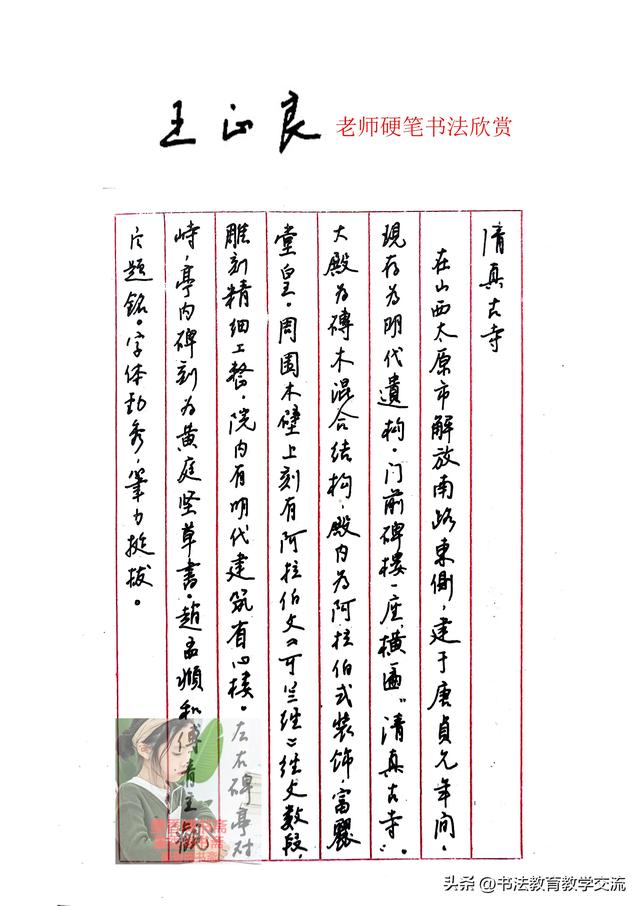 王正良 老师硬笔书法欣赏
清真古寺
在山西太原市解放南路東側，建于唐貞元年间。
現存为明代遺构。门前碑樓一座，橫匾“清真古寺”。
大殿为磚木混合结构，殿内为阿拉伯式装飾，富麗
堂皇。周围木壁上刻有阿拉伯文《可兰经》经文数段，
雕刻精细工整。院内有明代建筑省心楼。左右碑亭对
峙，亭内碑刻为黄庭坚草書。趙孟頫和傅青主觀
后题銘。字体劲秀，筆力挺拔。
头条 @书法教育教学交流